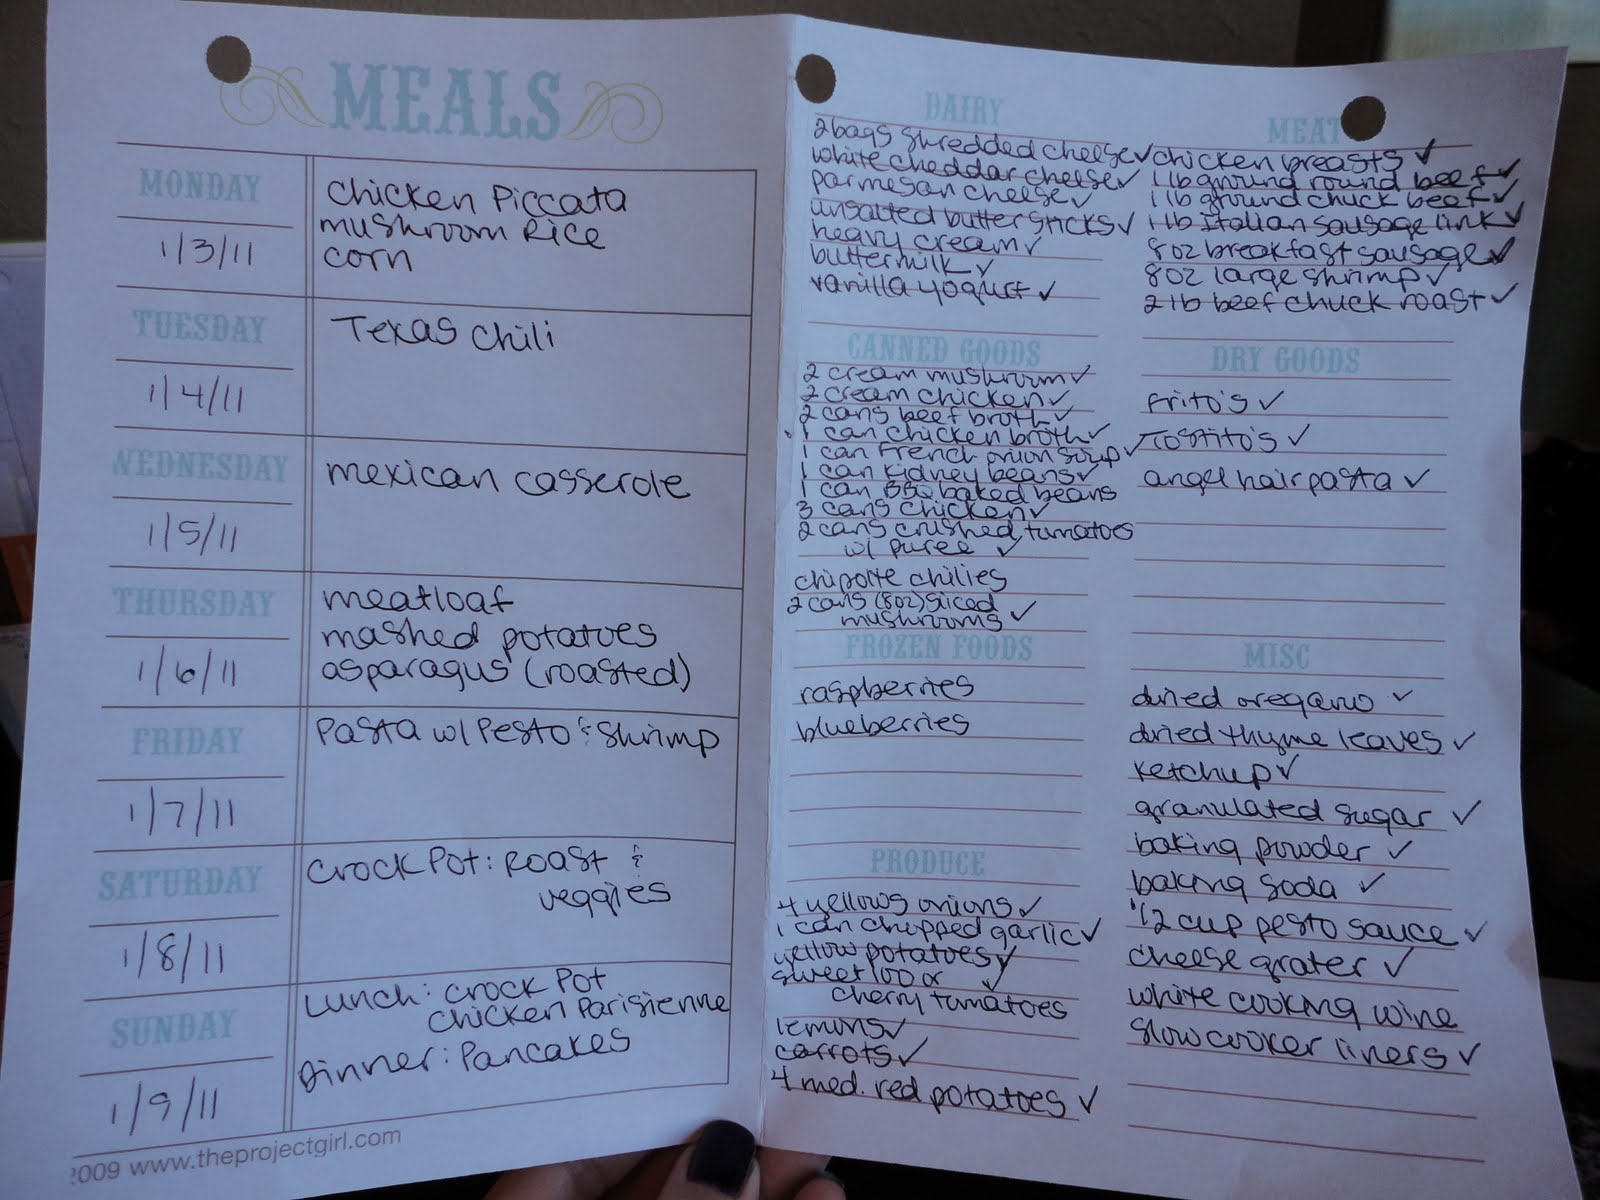 MEALS
MONDAY
1/3/11
Chicken Piccata
mushroom Rice
corn
TUESDAY
1/4/11
Texas Chili
WEDNESDAY
1/5/11
mexican casserole
THURSDAY
1/6/11
meatloaf
mashed potatoes
asparagus (roasted)
FRIDAY
1/7/11
Pasta w/ Pesto & Shrimp
SATURDAY
1/8/11
Crock Pot: Roast &
veggies
SUNDAY
1/9/11
Lunch: Crock Pot
Chicken Parisienne
Dinner: Pancakes
2009 www.theprojectgirl.com
DAIRY
2 bags shredded cheese ✓
white cheddar cheese ✓
parmesan cheese ✓
unsalted butter sticks ✓
heavy cream ✓
buttermilk ✓
vanilla yogurt ✓
CANNED GOODS
2 cream mushroom ✓
2 cream chicken ✓
2 cans beef broth ✓
1 can chicken broth ✓
1 can French onion soup ✓
1 can kidney beans ✓
1 can BBQ baked beans
3 cans chicken ✓
2 cans crushed tomatoes
w/ puree ✓
chipotle chilies
2 cans (8oz) sliced
mushrooms ✓
FROZEN FOODS
raspberries
blueberries
PRODUCE
4 yellows onions ✓
1 can chopped garlic ✓
yellow potatoes ✓
sweet 100 or ✓
cherry tomatoes
lemons ✓
carrots ✓
4 med. red potatoes ✓
MEAT
chicken breasts ✓
1 lb ground round beef ✓
1 lb ground chuck beef ✓
1 lb Italian sausage link ✓
8oz breakfast sausage ✓
8oz large shrimp ✓
2 lb beef chuck roast ✓
DRY GOODS
Frito's ✓
Tostito's ✓
angel hair pasta ✓
MISC
dried oregano ✓
dried thyme leaves ✓
ketchup ✓
granulated sugar ✓
baking powder ✓
baking soda ✓
1/2 cup pesto sauce ✓
cheese grater ✓
white cooking wine
slow cooker liners ✓